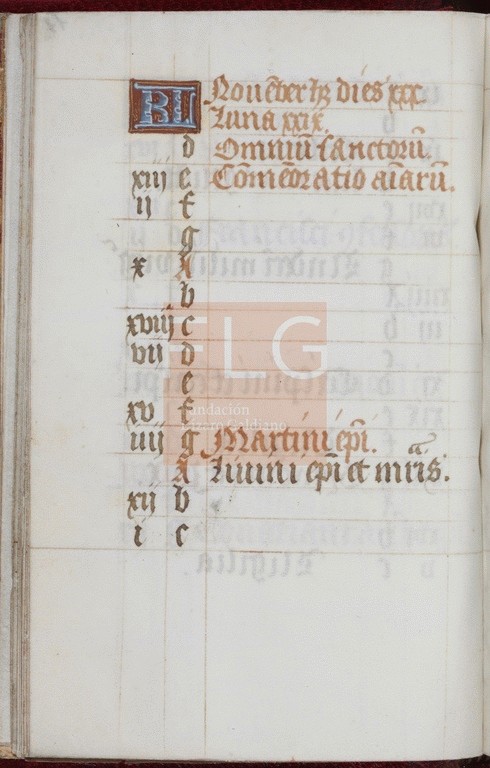 KL Nouēber hȝ dies xxx.
Luna xxix.
d Omniū sanctorū.
xiij e Cōmēoratio aīarū.
ij f
g
x A
b
xviij c
vij d
e
xv f
iiij g Martini ep̄i.
A ep̄i et mr̄is.
xij b
i c
FLG
Fundación
Lázaro Galdiano